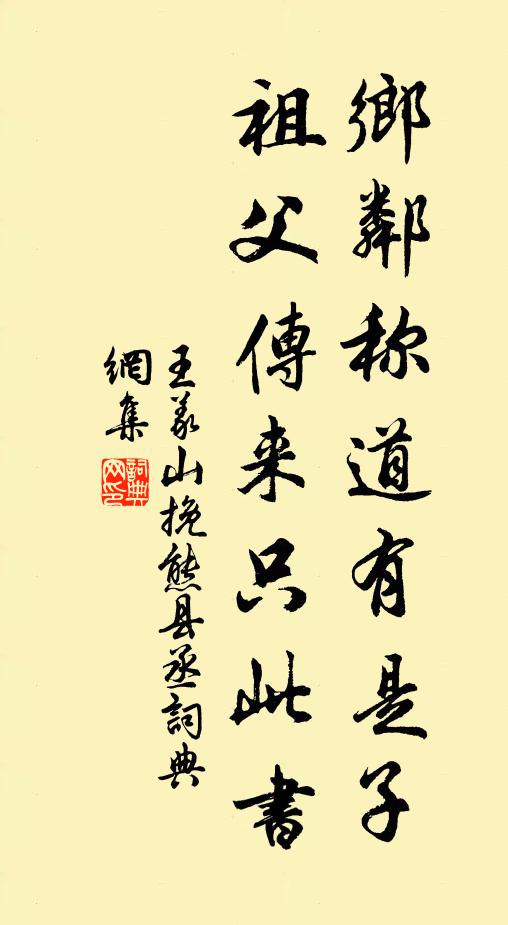 鄉鄰称道有是子
祖父傳来只此書
王义山挽熊县丞詞典
網集
詞典網印